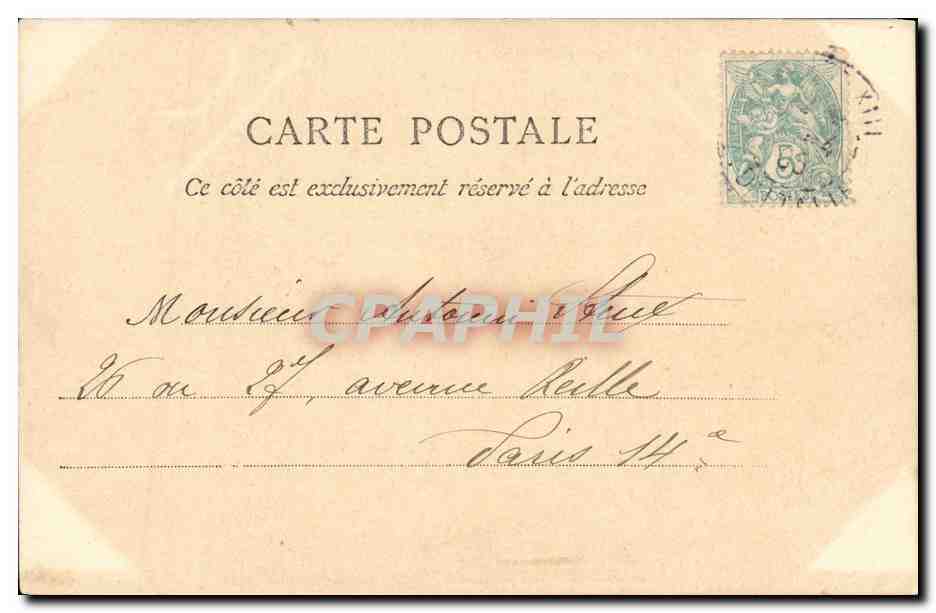 CARTE POSTALE
Ce côté est exclusivement réservé à l'adresse
5
CPAPHIL
Monsieur Antonin
26 ou 27, avenue Reille
Paris 14e